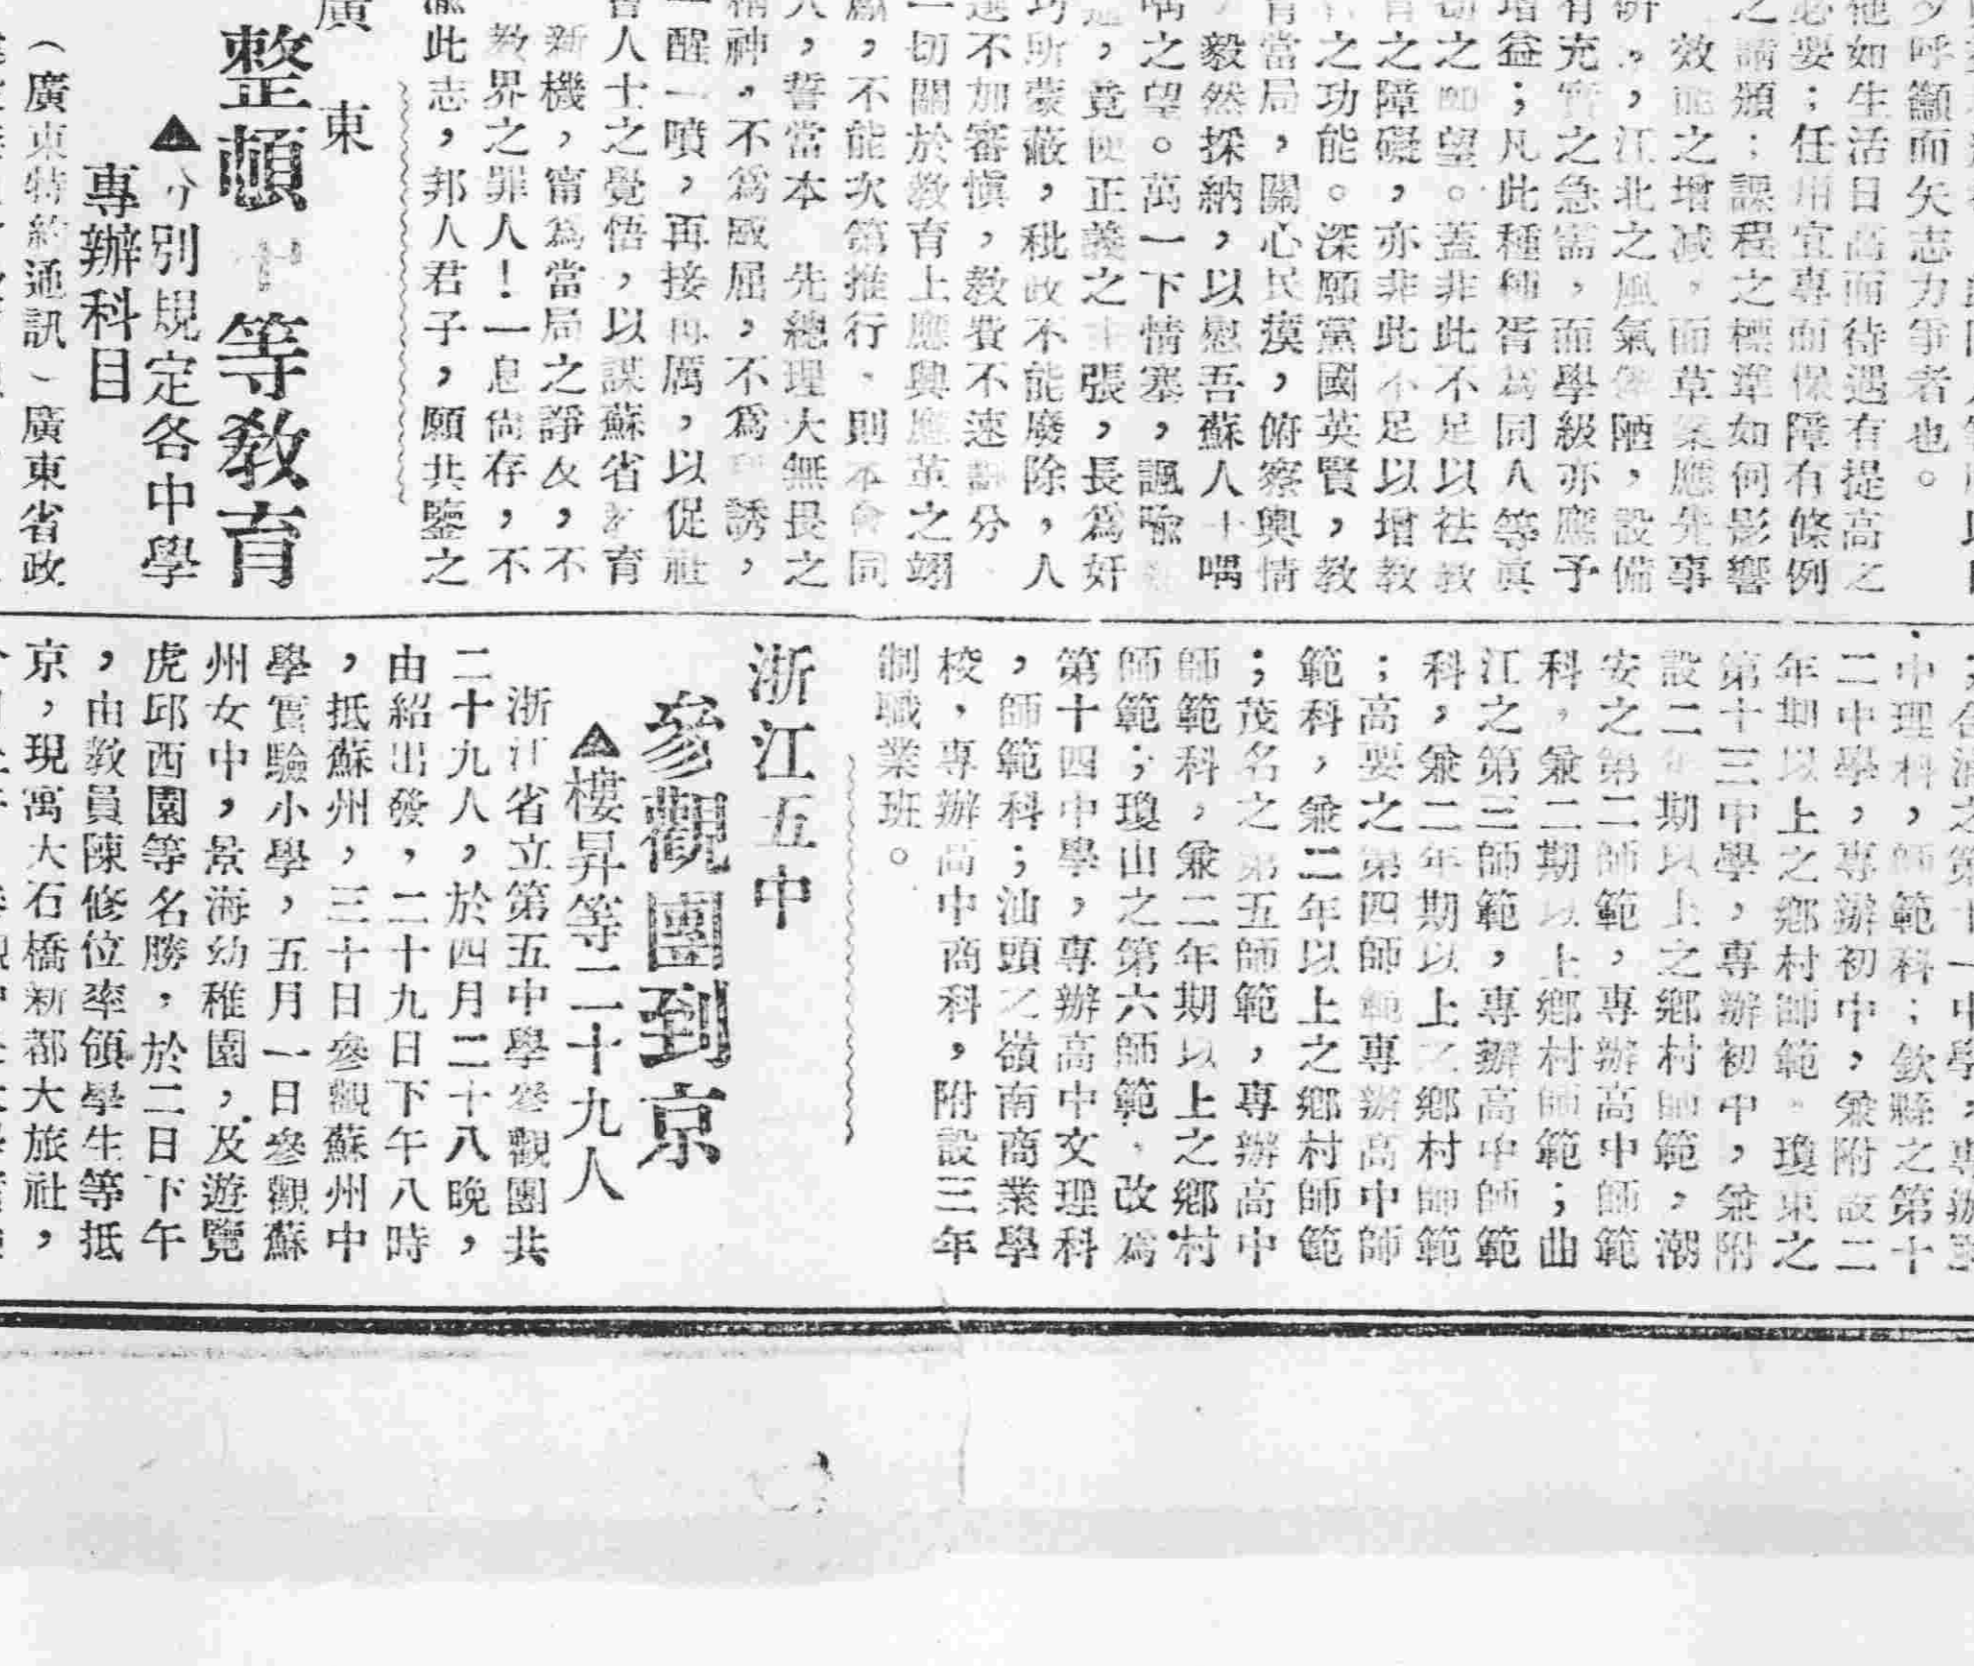 呼籲而矢志力爭者也。
他如生活日高而待遇有提高之
必要；任用宜專而保障有條例
之請頒；課程之標準如何影響
效能之增減，而草案應先事
江北之風氣僻陋，設備
有充實之急需，而學級亦應予
增益；凡此種種胥為同人等真
切之望。蓋非此不足以祛教
育之障礙，亦非此不足以增教
之功能。深願黨國英賢，教
育當局，關心民瘼，俯察輿情
，毅然採納，以慰吾蘇人士喁
喁之望。萬一下情壅塞，諷喻
，竟使正義之主張，長為奸
所蒙蔽，秕政不能廢除，人
選不加審慎，教費不速
一切關於教育上應興應革之翊
，不能次第推行，則不
人，誓當本 先總理大無畏之
精神，不為威屈，不為利誘，
一醒一噴，再接再厲，以促社
會人士之覺悟，以謀蘇省教育
新機，甯為當局之諍友，不
教界之罪人！一息尙存，不
渝此志，邦人君子，願共鑒之
廣東
整頓中等教育
▲分別規定各中學
專辦科目
（廣東特約通訊）廣東省政
中理科，師範科；欽縣之第十
二中學，專辦初中，兼附設二
年期以上之鄉村師範。瓊東之
第十三中學，專辦初中，兼附
設二年期以上之鄉村師範，潮
安之第二師範，專辦高中師範
科，兼二期以上鄉村師範；曲
江之第三師範，專辦高中師範
科，兼二年期以上之鄉村師範
；高要之第四師範專辦高中師
範科，兼二年以上之鄉村師範
；茂名之第五師範，專辦高中
師範科，兼二年期以上之鄉村
師範；瓊山之第六師範，改為
第十四中學，專辦高中文理科
，師範科；汕頭之嶺南商業學
校，專辦高中商科，附設三年
制職業班。
浙江五中
參觀團到京
▲樓昇等二十九人
浙江省立第五中學參觀團共
二十九人，於四月二十八晚，
由紹出發，二十九日下午八時
，抵蘇州，三十日參觀蘇州中
學實驗小學，五月一日參觀蘇
州女中，景海幼稚園，及遊覽
虎邱西園等名勝，於二日下午
，由教員陳修位率領學生等抵
京，現寓大石橋新都大旅社，